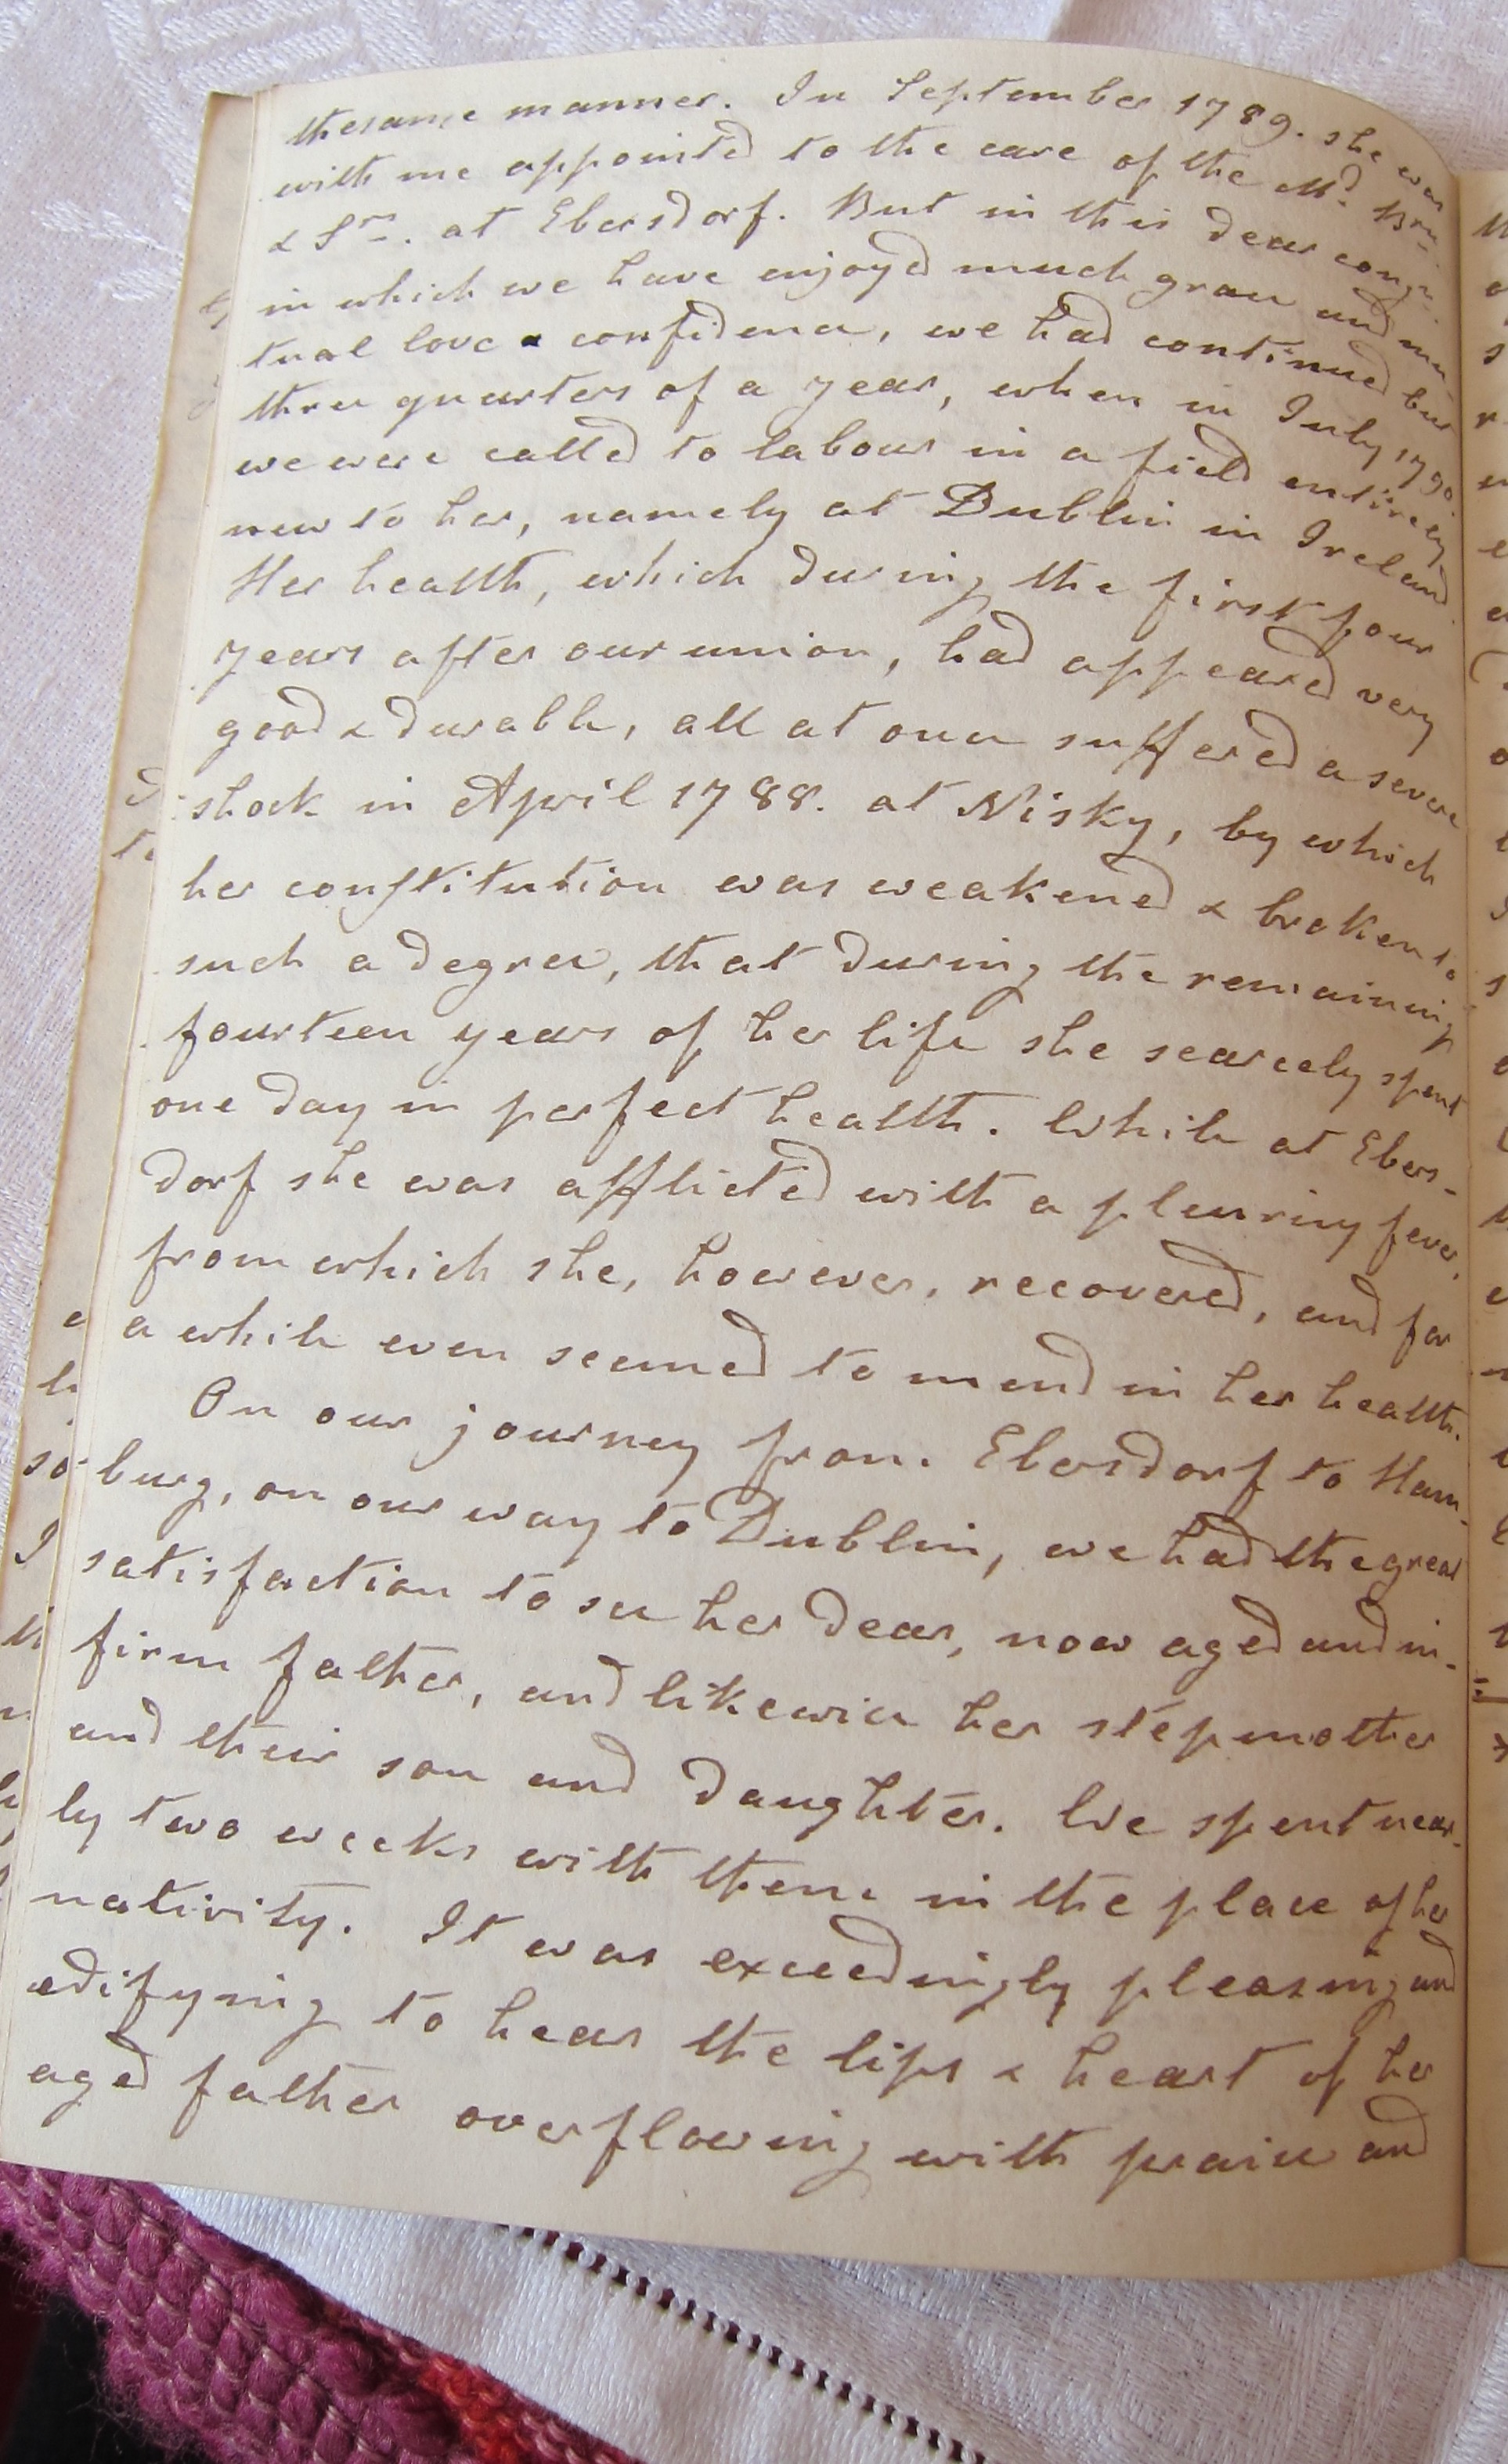 the same manner. In September 1789. she was
with me appointed to the care of the Md. Brn.
& Srs. at Ebersdorf. But in this dear congn.
in which we have enjoyed much grace and mu
tual love & confidence, we had continued but
three quarters of a year, when in July 1790
we were called to labour in a field entirely
new to her, namely at Dublin in Ireland
Her health, which during the first four
years after our union, had appeared very
good & durable, all at once suffered a severe
shock in April 1788. at Nisky, by which
her constitution was weakened & broken to
such a degree, that during the remaining
fourteen years of her life she scarcely spent
one day in perfect health. While at Ebers-
dorf she was afflicted with a pleurisy fever,
from which she, however, recovered, and for
a while even seemed to mend in her health.
On our journey from Ebersdorf to Ham-
burg, on our way to Dublin, we had the great
satisfaction to see her dear, now aged and in-
firm father, and likewise her stepmother
and their son and daughter. We spent near-
ly two weeks with them in the place of her
nativity. It was exceedingly pleasing and
edifying to hear the lips & heart of her
aged father overflowing with praise and